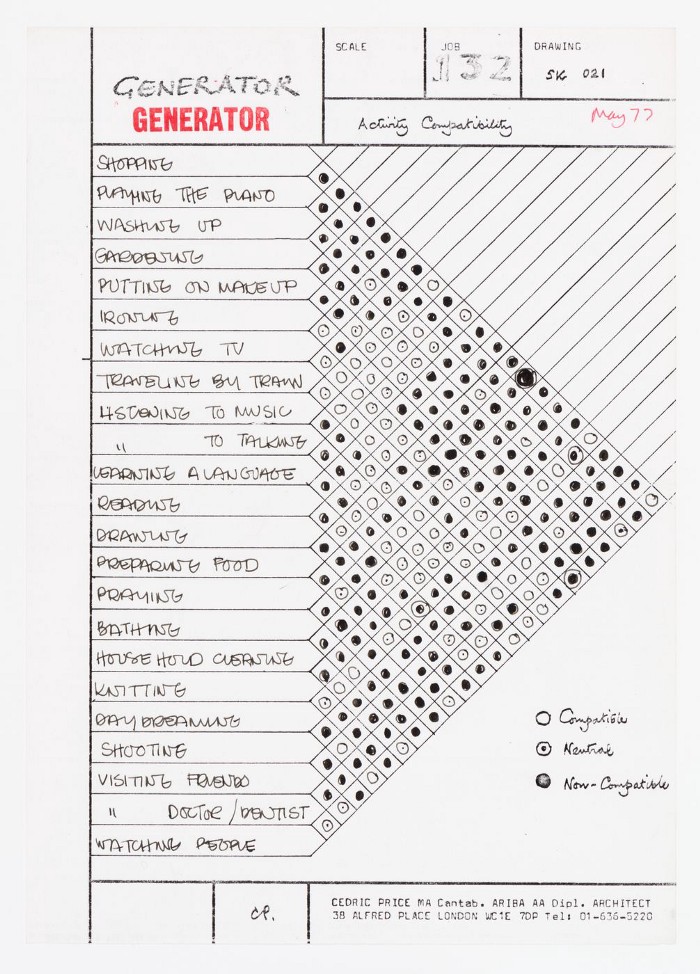 SCALE
JOB
DRAWING
GENERATOR
132
SK 021
GENERATOR
May 77
Activity Compatibility
SHOPPING
PLAYING THE PIANO
WASHING UP
GARDENING
PUTTING ON MAKEUP
IRONING
WATCHING TV
TRAVELING BY TRAIN
LISTENING TO MUSIC
" TO TALKING
LEARNING A LANGUAGE
READING
DRAWING
PREPARING FOOD
PRAYING
BATHING
HOUSEHOLD CLEANING
KNITTING
DAY DREAMING
SHOOTING
VISITING FRIENDS
" DOCTOR / DENTIST
WATCHING PEOPLE
Compatible
Neutral
Non-Compatible
CP.
CEDRIC PRICE MA Cantab. ARIBA AA Dipl. ARCHITECT
38 ALFRED PLACE LONDON WC1E 7DP Tel: 01-636-5220